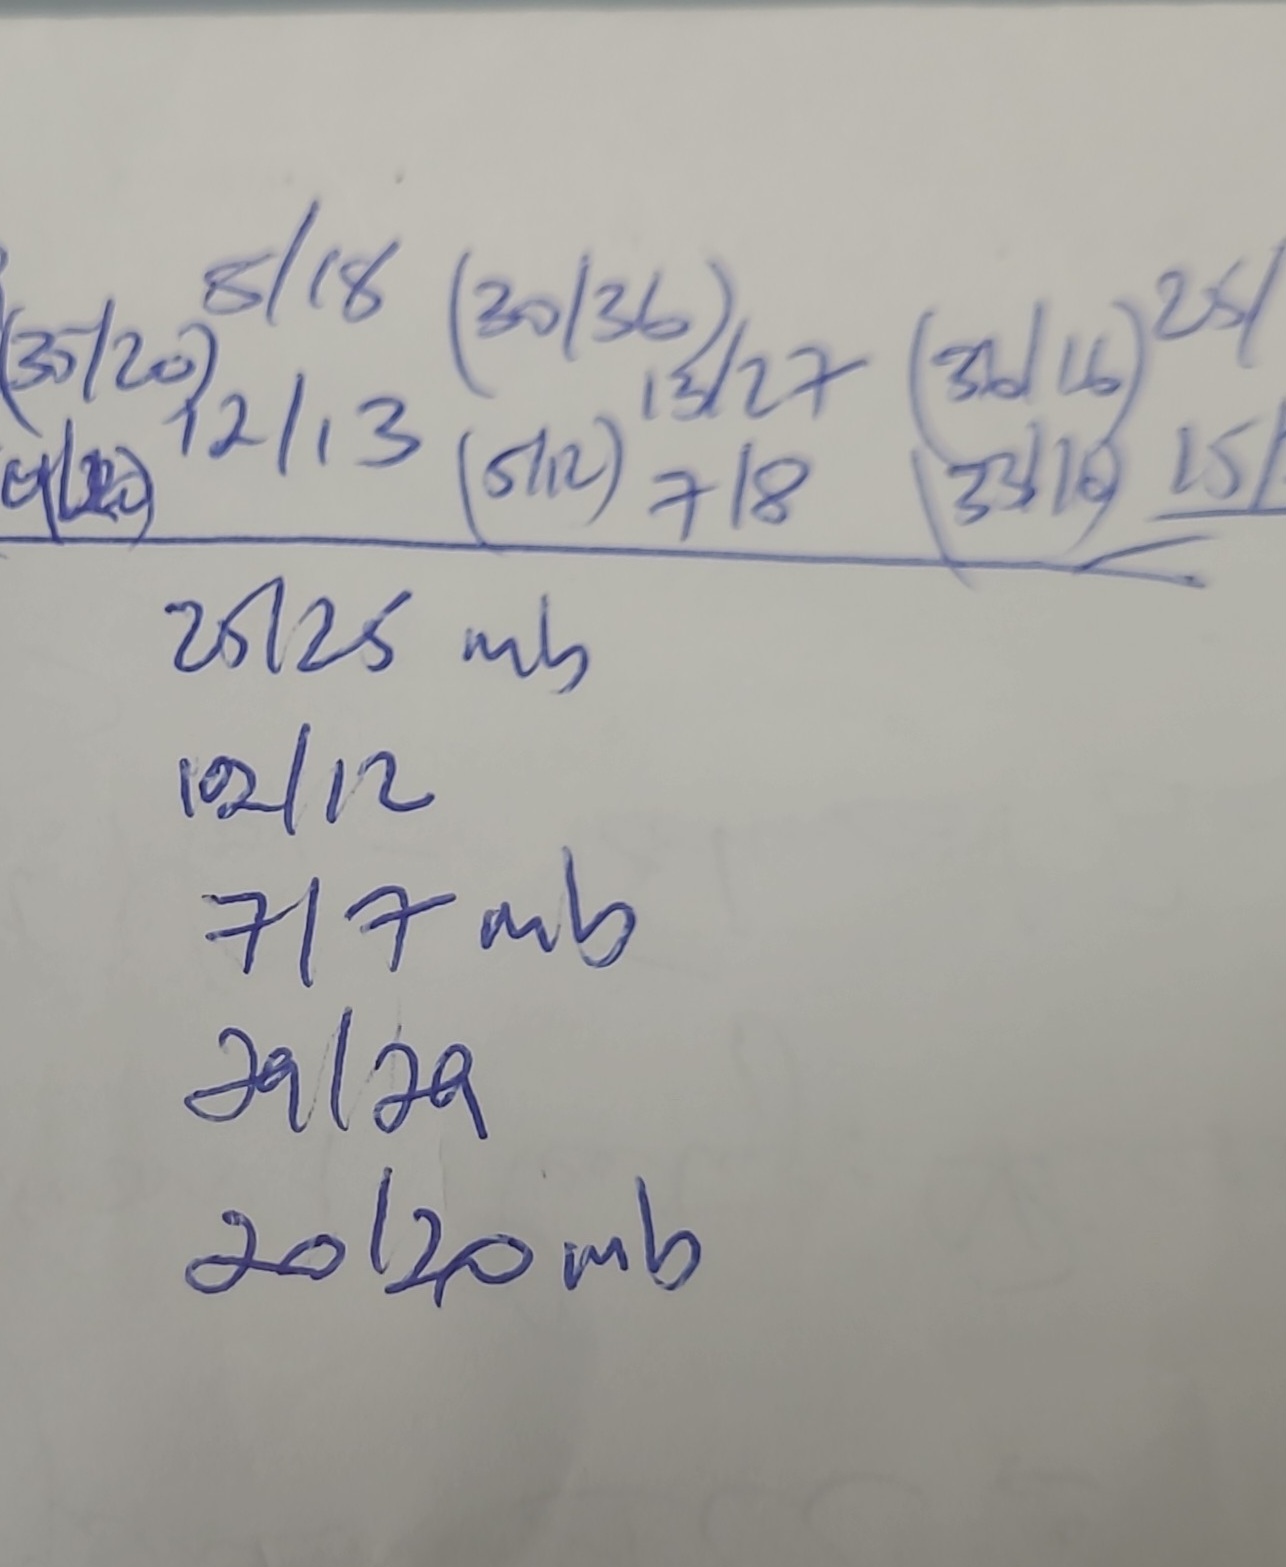 8/18 (30/36) 25/
(35/20) 13/27 (36/16)
12/13 (5/12) 7/8 (33/19) 15/
25/25 mb
12/12
7/7 mb
29/29
20/20 mb